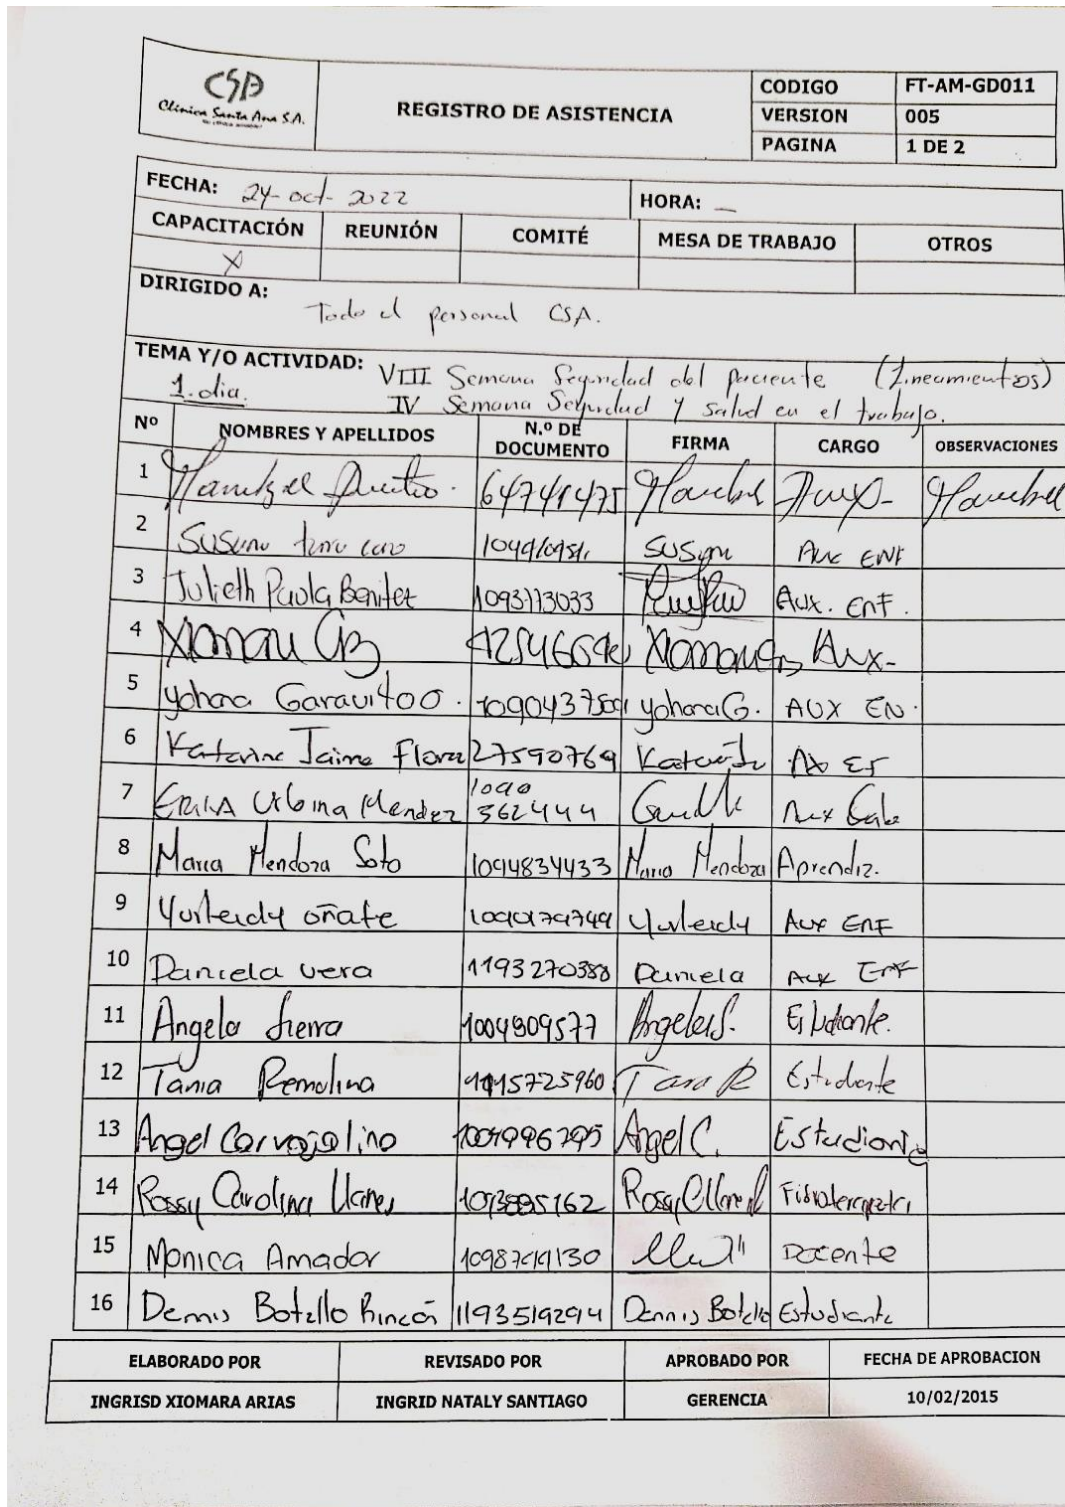 CSA
Clínica Santa Ana S.A.
REGISTRO DE ASISTENCIA
CODIGO FT-AM-GD011
VERSION 005
PAGINA 1 DE 2
FECHA: 24-oct-2022 HORA: —
CAPACITACIÓN REUNIÓN COMITÉ MESA DE TRABAJO OTROS
X
DIRIGIDO A:
Todo el personal CSA.
TEMA Y/O ACTIVIDAD: VIII Semana Seguridad del paciente (Lineamientos)
1. dia. IV Semana Seguridad y salud en el trabajo.
Nº NOMBRES Y APELLIDOS N.º DE DOCUMENTO FIRMA CARGO OBSERVACIONES
1 64741475 Aux-
2 Susana Susana Aux ENF
3 Julieth Paola Benitez 1093113033 Aux. enf.
4 Aux-
5 yohana Garavito O. yohana G. AUX EN.
6 Katerine Jaime Florez 27590769
7 ERIKA Urbina Mendez 1090 362444 Aux
8 Maria Mendoza Soto 1094834433 Maria Mendoza Aprendiz.
9 Yurleidy oñate Yurleidy Aux ENF
10 Daniela vera 1193270388 Daniela Aux Enf
11 Angela Sierra 1004809577 Angela S. Estudiante.
12 Tania Remolina 1115725960 Tania R Estudiante
13 Angel Carvajalino Angel C. Estudiante
14 Rossy Carolina Llanes Fisioterapeuta
15 Monica Amador Docente
16 Dennis Botello Rincón 1193519294 Dennis Botello Estudiante
ELABORADO POR REVISADO POR APROBADO POR FECHA DE APROBACION
INGRISD XIOMARA ARIAS INGRID NATALY SANTIAGO GERENCIA 10/02/2015